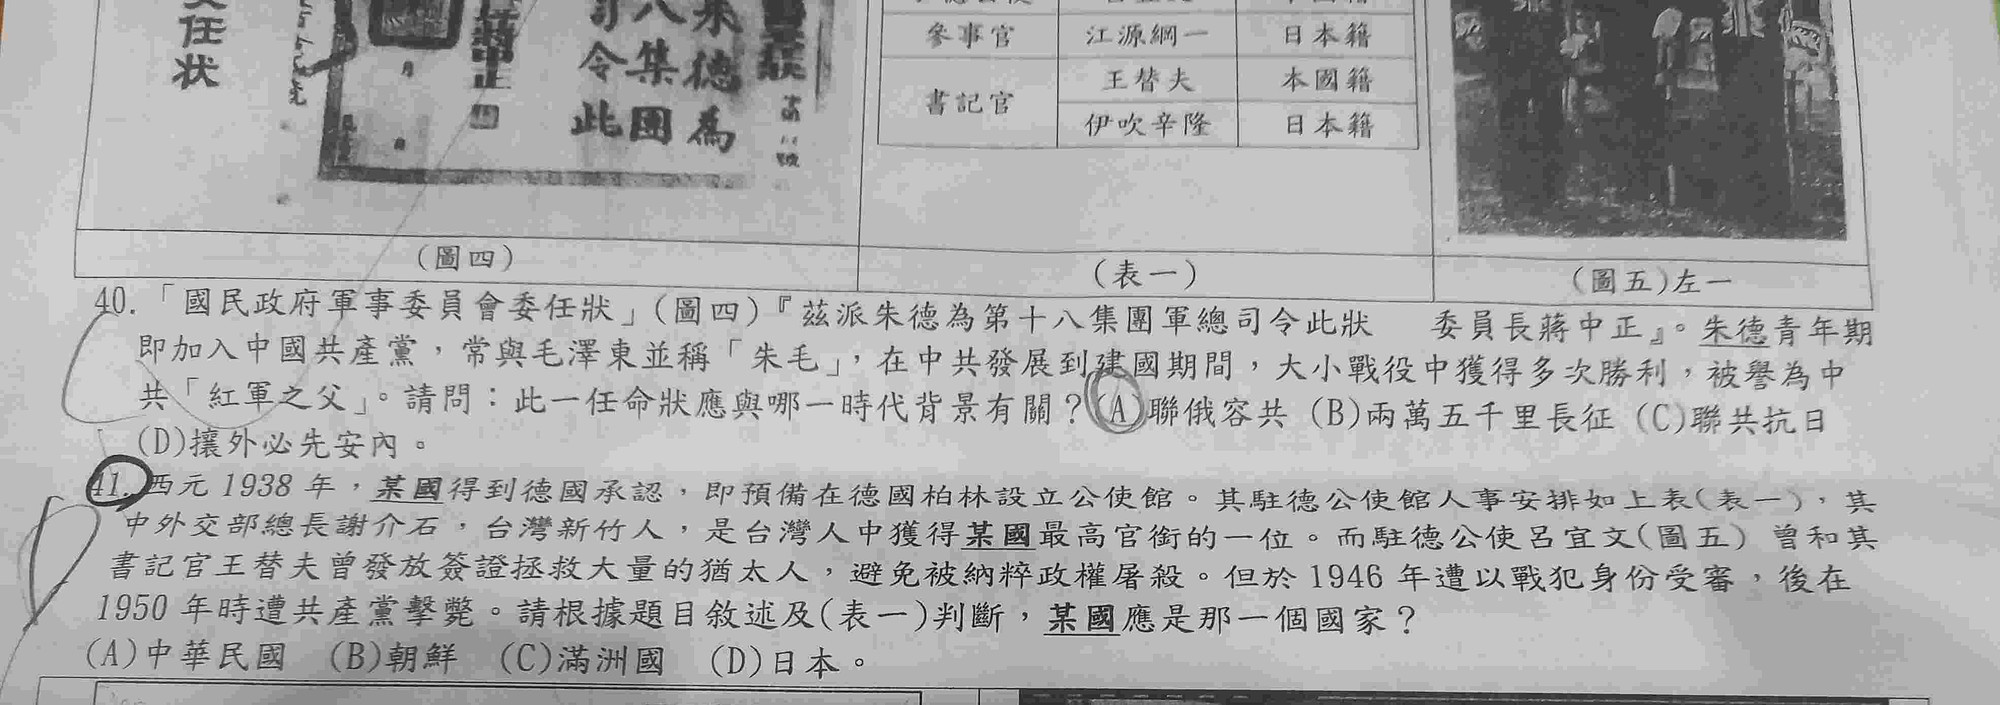 任
状
月
日
蔣中正
司令此
八集團
朱德為
參事官 江源綱一 日本籍
書記官 王替夫 本國籍
伊吹辛隆 日本籍
(圖四)
(表一)
(圖五)左一
40.「國民政府軍事委員會委任狀」(圖四)『茲派朱德為第十八集團軍總司令此狀 委員長蔣中正』。朱德青年期
即加入中國共產黨，常與毛澤東並稱「朱毛」，在中共發展到建國期間，大小戰役中獲得多次勝利，被譽為中
共「紅軍之父」。請問：此一任命狀應與哪一時代背景有關？(A)聯俄容共 (B)兩萬五千里長征 (C)聯共抗日
(D)攘外必先安內。
41.西元 1938 年，某國得到德國承認，即預備在德國柏林設立公使館。其駐德公使館人事安排如上表(表一)，其
中外交部總長謝介石，台灣新竹人，是台灣人中獲得某國最高官銜的一位。而駐德公使呂宜文(圖五) 曾和其
書記官王替夫曾發放簽證拯救大量的猶太人，避免被納粹政權屠殺。但於 1946 年遭以戰犯身份受審，後在
1950 年時遭共產黨擊斃。請根據題目敘述及(表一)判斷，某國應是那一個國家？
(A)中華民國 (B)朝鮮 (C)滿洲國 (D)日本。